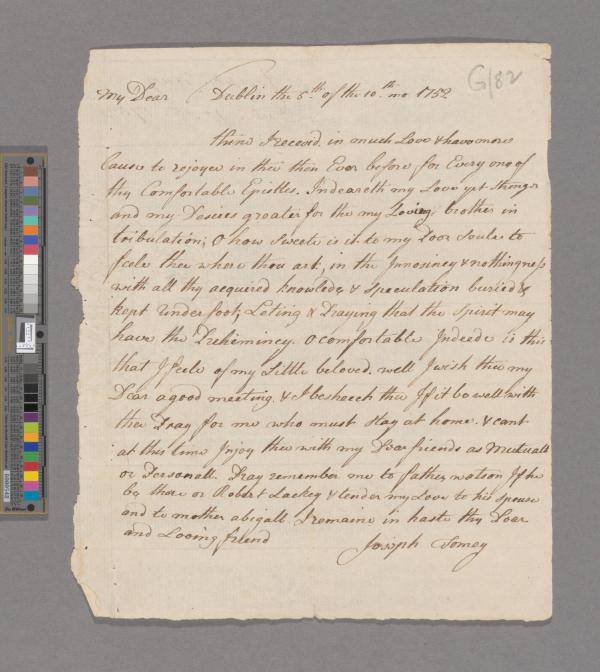 G/82
My Dear Dublin the 5th of the 10th mo 1752
thine I receivd. in much Love & have more
Cause to rejoyce in thee then Ever before for Every one of
thy Comfortable Epistles. Indeareth my Love yet stronger
and my Desires greater for the my Loving brother in
tribulation; O how sweete is it to my Poor Soule to
feele thee where thou art, in the Innosincy & nothingness
with all thy acquired knowledg & speculation buried &
kept under foot, Leting & Praying that the spirit may
have the Prehemincy. O comfortable Indeede is this
that I feele of my Little beloved. well I wish thee my
Dear a good meeting. & I besheech thee If it be well with
thee Pray for me who must stay at home. & cant
at this time Injoy thee with my Dear friends as Mutuall
or Personall. Pray remember me to father watson If he
be there or Robert Lackey & tender my Love to his spouse
and to mother abigall I remaine in haste thy Dear
and Loving friend Joseph Tomey